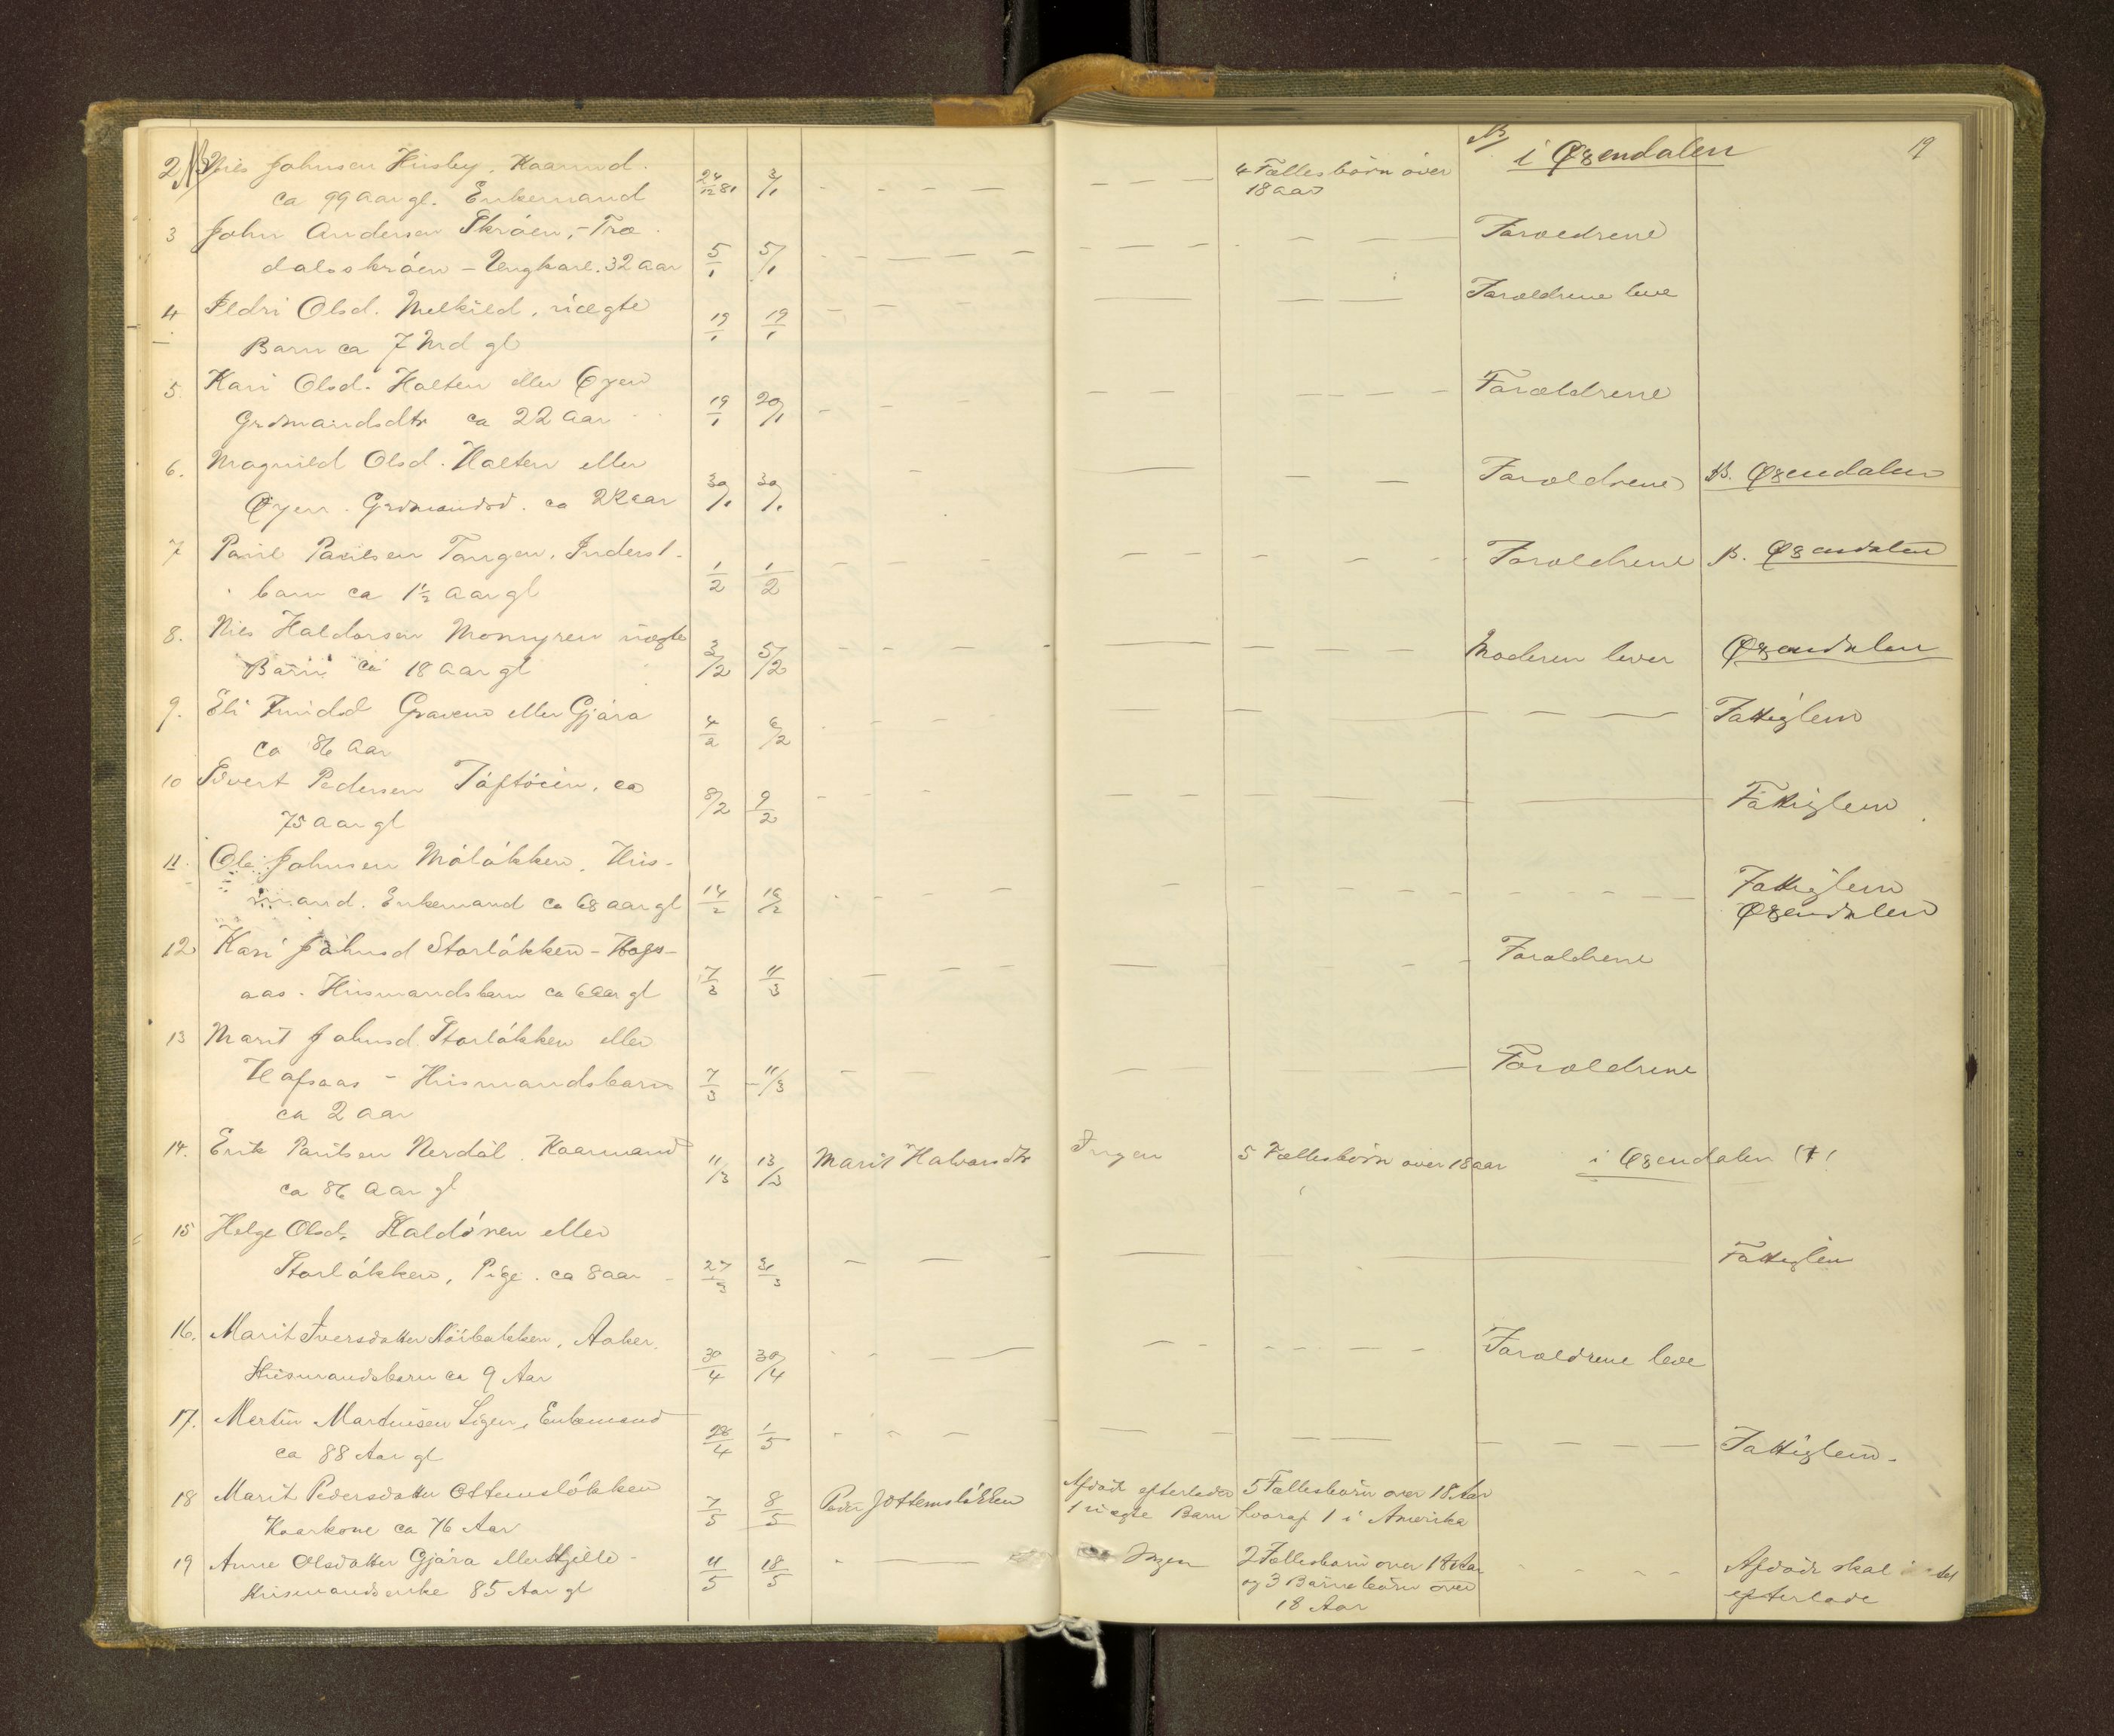 19
2 Nils Johnsen Husby. Kaarmd. 24/12 81 3/1 4 Fællesbörn över i Øxendalen
ca 99 aar gl. Enkemand 18 aar
3 John Andersen Skróen, - Træ 5/1 5/1 Foræeldrene
dalsskróen - Ungkarl. 32 aar
4 Ildri Olsd. Melkild, uægte 19/1 19/1 Forældrene leve
Barn ca 7 Md gl
5. Kari Olsd. Holten eller Öyen 19/1 20/1 Forældrene
Grdmandsdtr ca 22 aar
6. Magnild Olsd. Holten eller 30/1 30/1 Forældrene NB. Øxendalen
Öyen. Grdmandsd. ca 22 aar
7 Paul Paulsen Tangen. Inderst- 1/2 1/2 Forældrene NB. Øxendalen
barn ca 1½ aar gl
8. Nils Haldorsen Monyren uægte 3/2 5/2 Moderen lever Øxendalen
Barn ca 18 aar gl
9. Eli Knudsd Graven eller Gjóra 4/2 6/2 Fattiglem
ca 86 aar
10 Sivert Pedersen Tóftóien. ca 8/2 9/2 Fattiglem
75 aar gl
11. Ole Johnsen Mólókken. Hus- Fattiglem
mand. Enkemand ca 68 aar gl 14/2 16/2 Øxendalen
12 Kari Johnsd Storlókken - Hafs- 7/3 11/3 Forældrene
aas. Husmandsbarn ca 6 aar gl
13 Marit Johnsd Storlókken eller
Hafsaas - Husmandsbarn 7/3 11/3 Forældrene
ca 2 aar
14. Erik Paulsen Nerdal. Kaarmand 11/3 13/3 Marit Halvorsdtr Ingen 5 Fællesbörn over 18 aar i Øxendalen
ca 86 aar gl
15 Helge Olsd. eller
Storlókken, Pige. ca 8 aar 27/3 31/3 Fattiglem
16. Marit Iversdatter Nöisbakken, Aaker. 30/4 30/4 Forældrene leve
Husmandsbarn ca 9 Aar
17. Martin Martinisen Ligen, Enkemand 28/4 1/5 Fattiglem.
ca 88 Aar gl
18 Marit Pedersdatter Ottemslökken 7/5 8/5 Peder J Ottemslökken Afdöde efterlader 5 Fællesbörn over 18 Aar
Kaarkone ca 76 Aar 1 uægte Barn hvoraf 1 i Amerika
19 Anne Olsdatter Gjóra eller 11/5 18/5 Ingen 2 Fællesbarn over 18 Aar Afdöde skal
Husmandsenke 85 Aar gl og 3 Barnebörn over efterlade
18 Aar